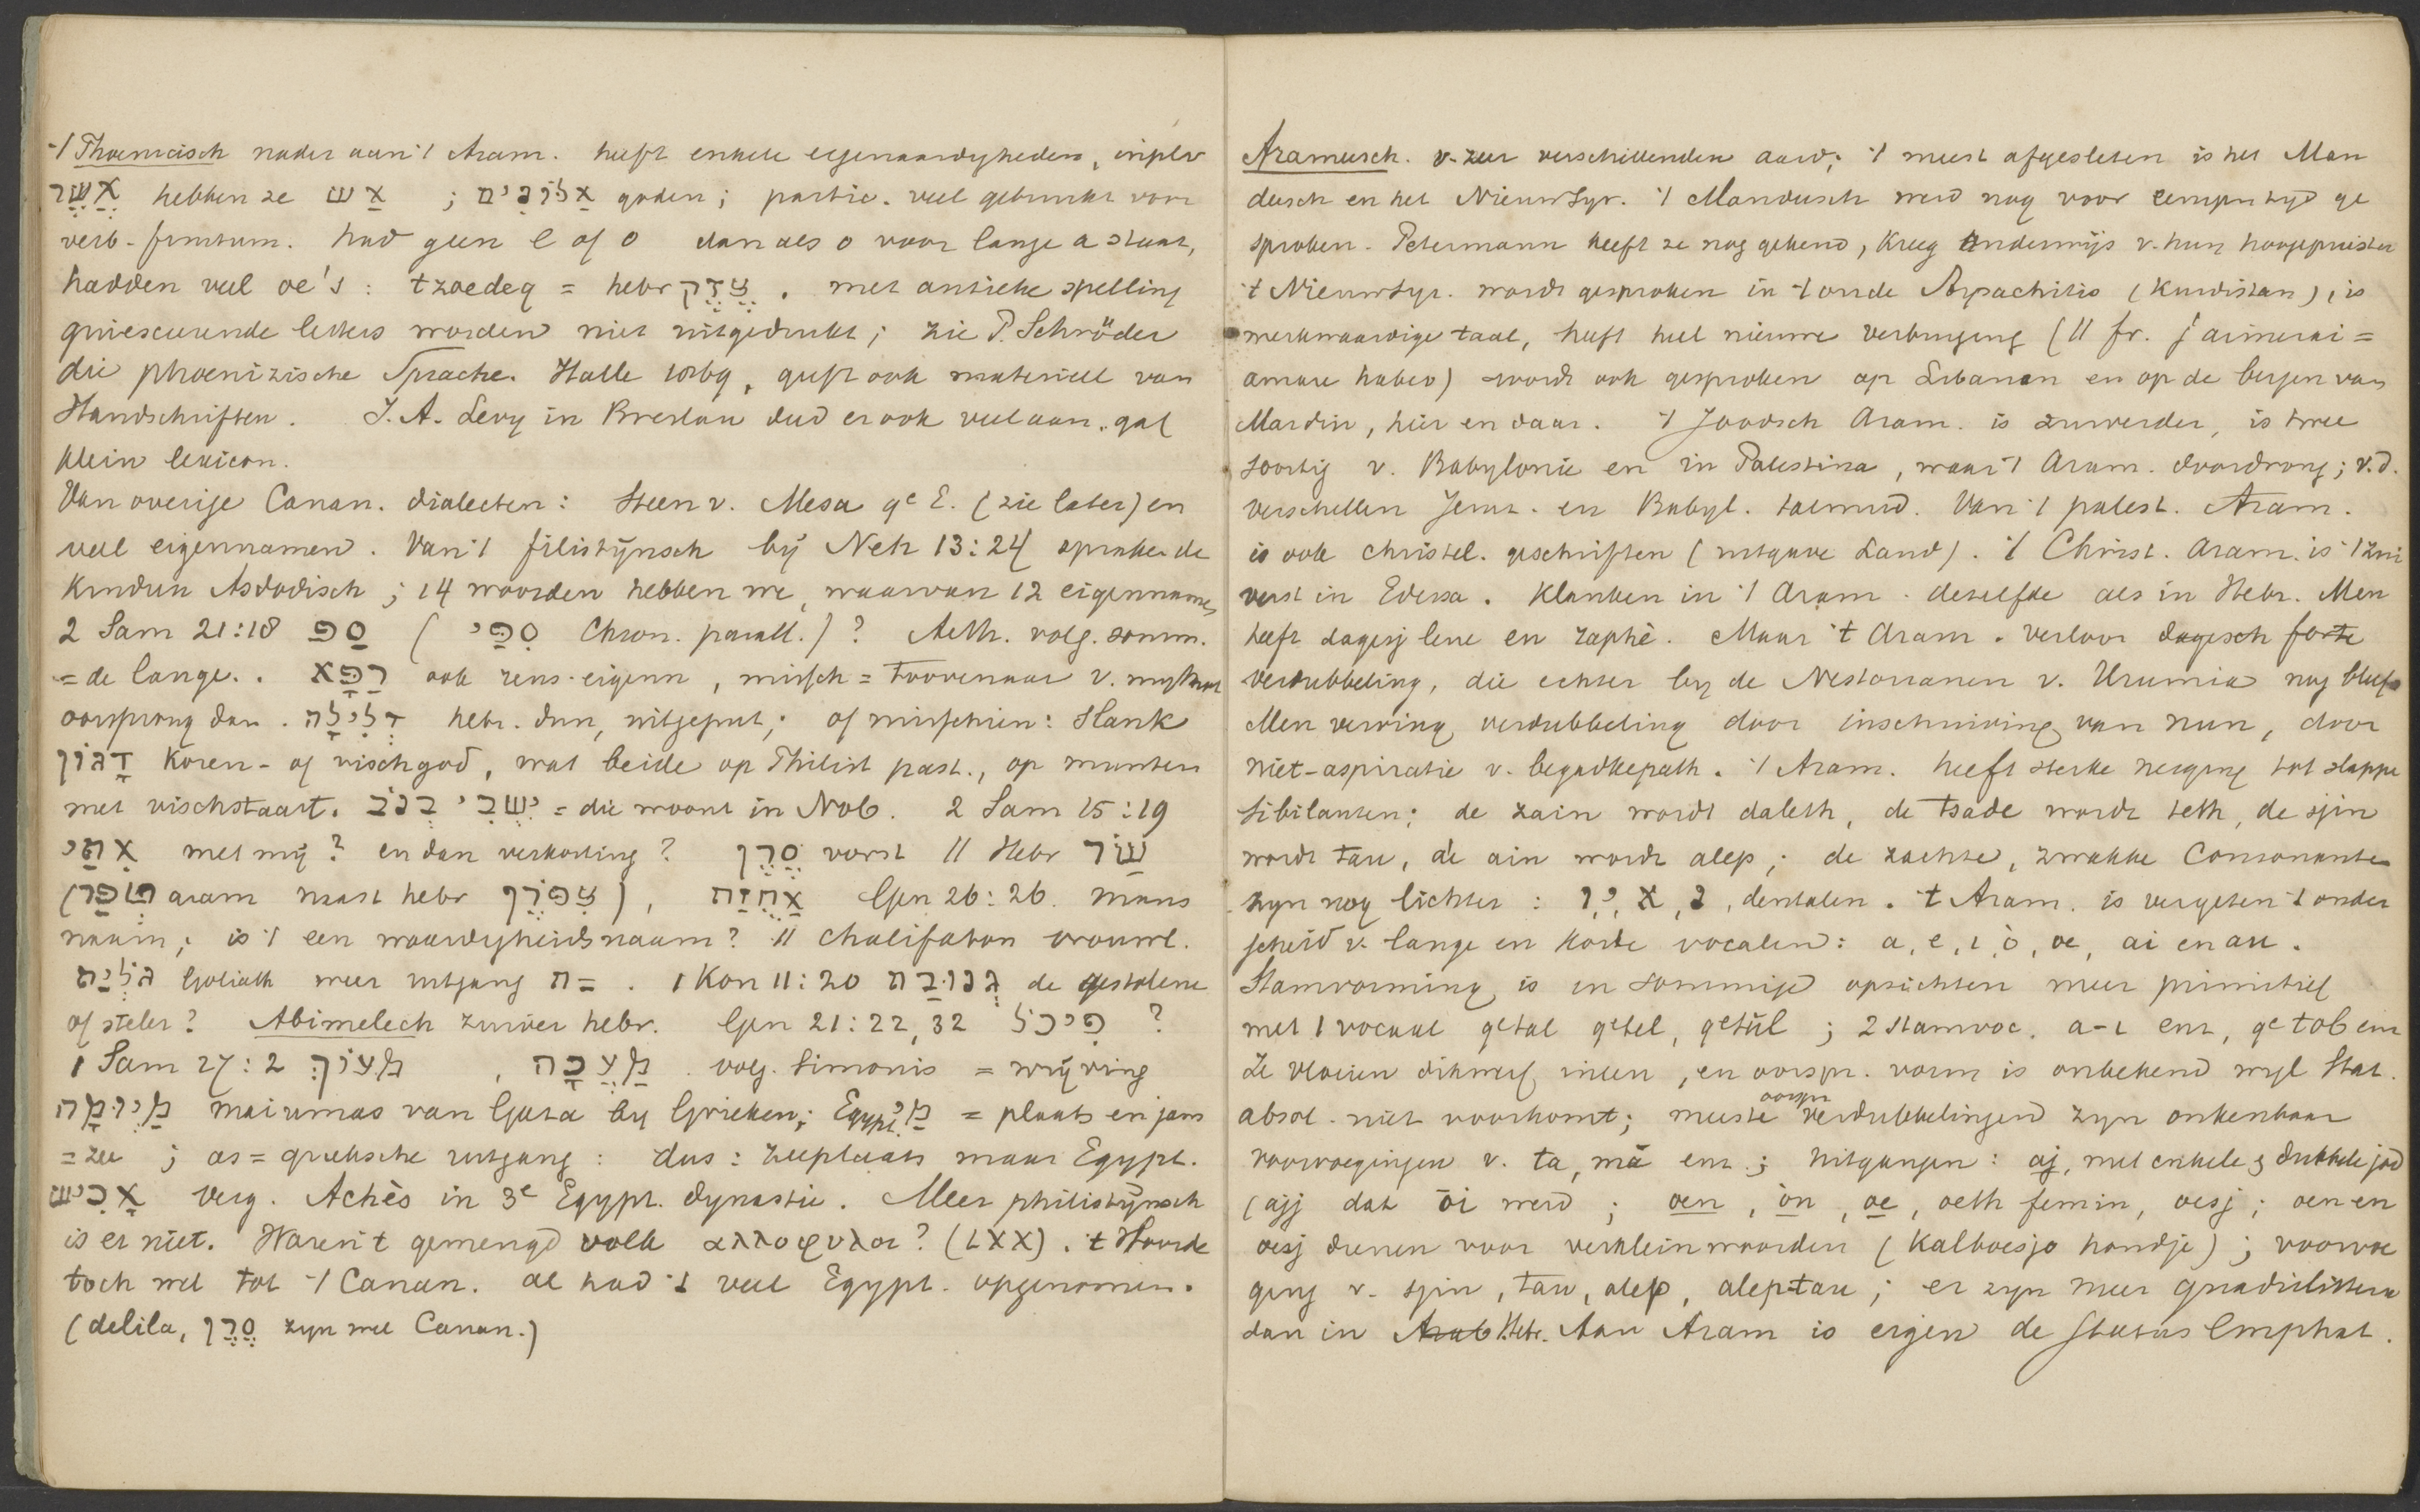 't Phoenicisch nader aan 't Aram. heeft enkele eigenaardigheden, in plv
אֲשֶׁר hebben ze אֲשׁ ; אֲלוֹנִים goden; partic. veel gebruikt voor
verb-finitum. had geen e of o dan als o voor lange a staat,
hadden veel oe's: tzoedeq = hebr צֶדֶק. met antieke spelling
quiescerende letters worden niet uitgedrukt; zie P. Schröder
die phoenizische Sprache. Halle 1869, geeft ook materieel van
Handschriften. J. A. Levy in Breslau deed er ook veel aan, gaf
klein lexicon.
Van overige Canan. dialecten: Steen v. Mesa 9e E. (zie later) en
veel eigennamen. Van 't filistijnsch bij Neh 13:24 spraken de
kinderen Asdodisch; 14 woorden hebben we, waarvan 12 eigennamen
2 Sam 21:18 סַף (סִפַּי Chron. parall.)? Aeth. volg. somm.
= de lange. רָפָא ook reus-eigenn, missch = toovenaar v. myth
oorsprong dan. דְּלִילָה hebr. dun, uitgeput; of misschien: slank
דָּגוֹן Koren- of vischgod, wat beide op Philist past., op munten
met vischstaart. יִשְׁבִּי בְנֹב = die woont in Nob. 2 Sam 15:19
אִתַּי met mij? en dan verkorting? סֶרֶן vorst // Hebr שַׂר
( aram naast hebr צִפֹּרֶן), אֲחֻזַּת Gen 26:26. mans
naam; is 't een waardigheidsnaam? // chalifaton vrouwl.
גָּלְיַת Goliath weer uitgang ־ַת. 1 Kon 11:20 גְּנֻבַת de gestolene
of steler? Abimelech zuiver hebr. Gen 21:22,32 פִּיכֹל ?
1 Sam 27:2 מָעוֹךְ, מַעֲכָה volg. Simonis = wrijving
מָיוּמָה maiumas van Gaza bij Grieken; Egypt. מָי = plaats en jam
= zee ; as = grieksche uitgang: dus: zeeplaats maar Egypt.
אָכִישׁ verg. Achès in 3e Egypt. dynastie. Meer philistijnsch
is er niet. Waren 't gemengd volk αλλοφυλοι? (LXX). 't Hoorde
toch wel tot 't Canan. al had 't veel Egypt. opgenomen.
(delila, סֶרֶן zijn wel Canan.)
Arameesch. v. zeer verschillenden aard; 't meest afgesleten is het Man
deesch en het NieuwSyr. 't Mandeesch werd nog voor eenigen tijd ge
sproken. Petermann heeft ze nog gekend, kreeg onderwijs v. hun hoogepriester
't NieuwSyr. wordt gesproken in 't oude Arpachitis (Kurdistan), is
merkwaardige taal, heeft heel nieuwe verbuiging (// fr. j'aimerai =
amare habeo) wordt ook gesproken op Libanon en op de bergen van
Mardin, hier en daar. 't Joodsch Aram. is zuiverder, is twee
soortig v. Babylonie en in Palestina, waar 't Aram. doordrong; v.d.
verschillen Jerus. en Babyl. talmud. Van 't palest. Aram.
is ook christel. geschriften (uitgave Land). 't Christ. Aram. is 't zui
verst in Edessa. Klanken in 't Aram. dezelfde als in Hebr. Men
heeft dagesj lene en raphè. Maar 't Aram. verloor dagesch forte
verdubbeling, die echter bij de Nestorianen v. Urumia nog bleef
Men verving verdubbeling door inschuiving van nun, door
niet-aspiratie v. begadkepath. 't Aram. heeft sterke neiging tot slappe
sibilanten; de zain wordt daleth, de tsade wordt teth, de sjin
wordt tau, de ain wordt alep; de zachte, zwakke Consonanten
zijn nog lichter: ו, י, א, נ, dentalen. 't Aram. is vergeten 't onder
scheid v. lange en korte vocalen: a, e, i, o, oe, ai en au.
Stamvorming is in sommige opzichten meer primitief
met 1 vocaal qetal qetel, qetûl ; 2 stamvoc. a-i enz, qetob enz
Ze vloeien dikwerf ineen, en oorspr. vorm is onbekend wijl Stat.
absol. niet voorkomt; meeste oorspr verdubbelingen zijn onkenbaar
voorvoegingen v. ta, mā enz.; uitgangen: aj, met enkele & dubbele jod
(ajj dat ōi werd; oen, ôn, oe, oeth femin, oesj; oen en
oesj dienen voor verkleinwoorden (Kalboesjo hondje); voorvoe
ging v. sjin, tau, alep, aleptau; er zijn meer quadrilittera
dan in Arab Hebr. Aan Aram is eigen de Status Emphat.